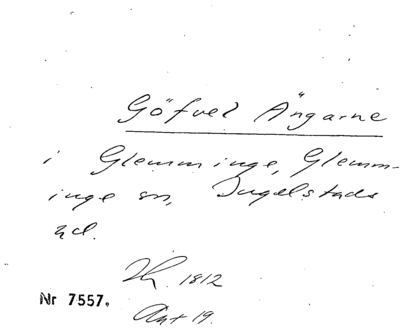 Göfvel Ängarne
i Glemminge, Glemm-
inge sn, Ingelstads
hd.
1812
Nr 7557.
Akt 19.